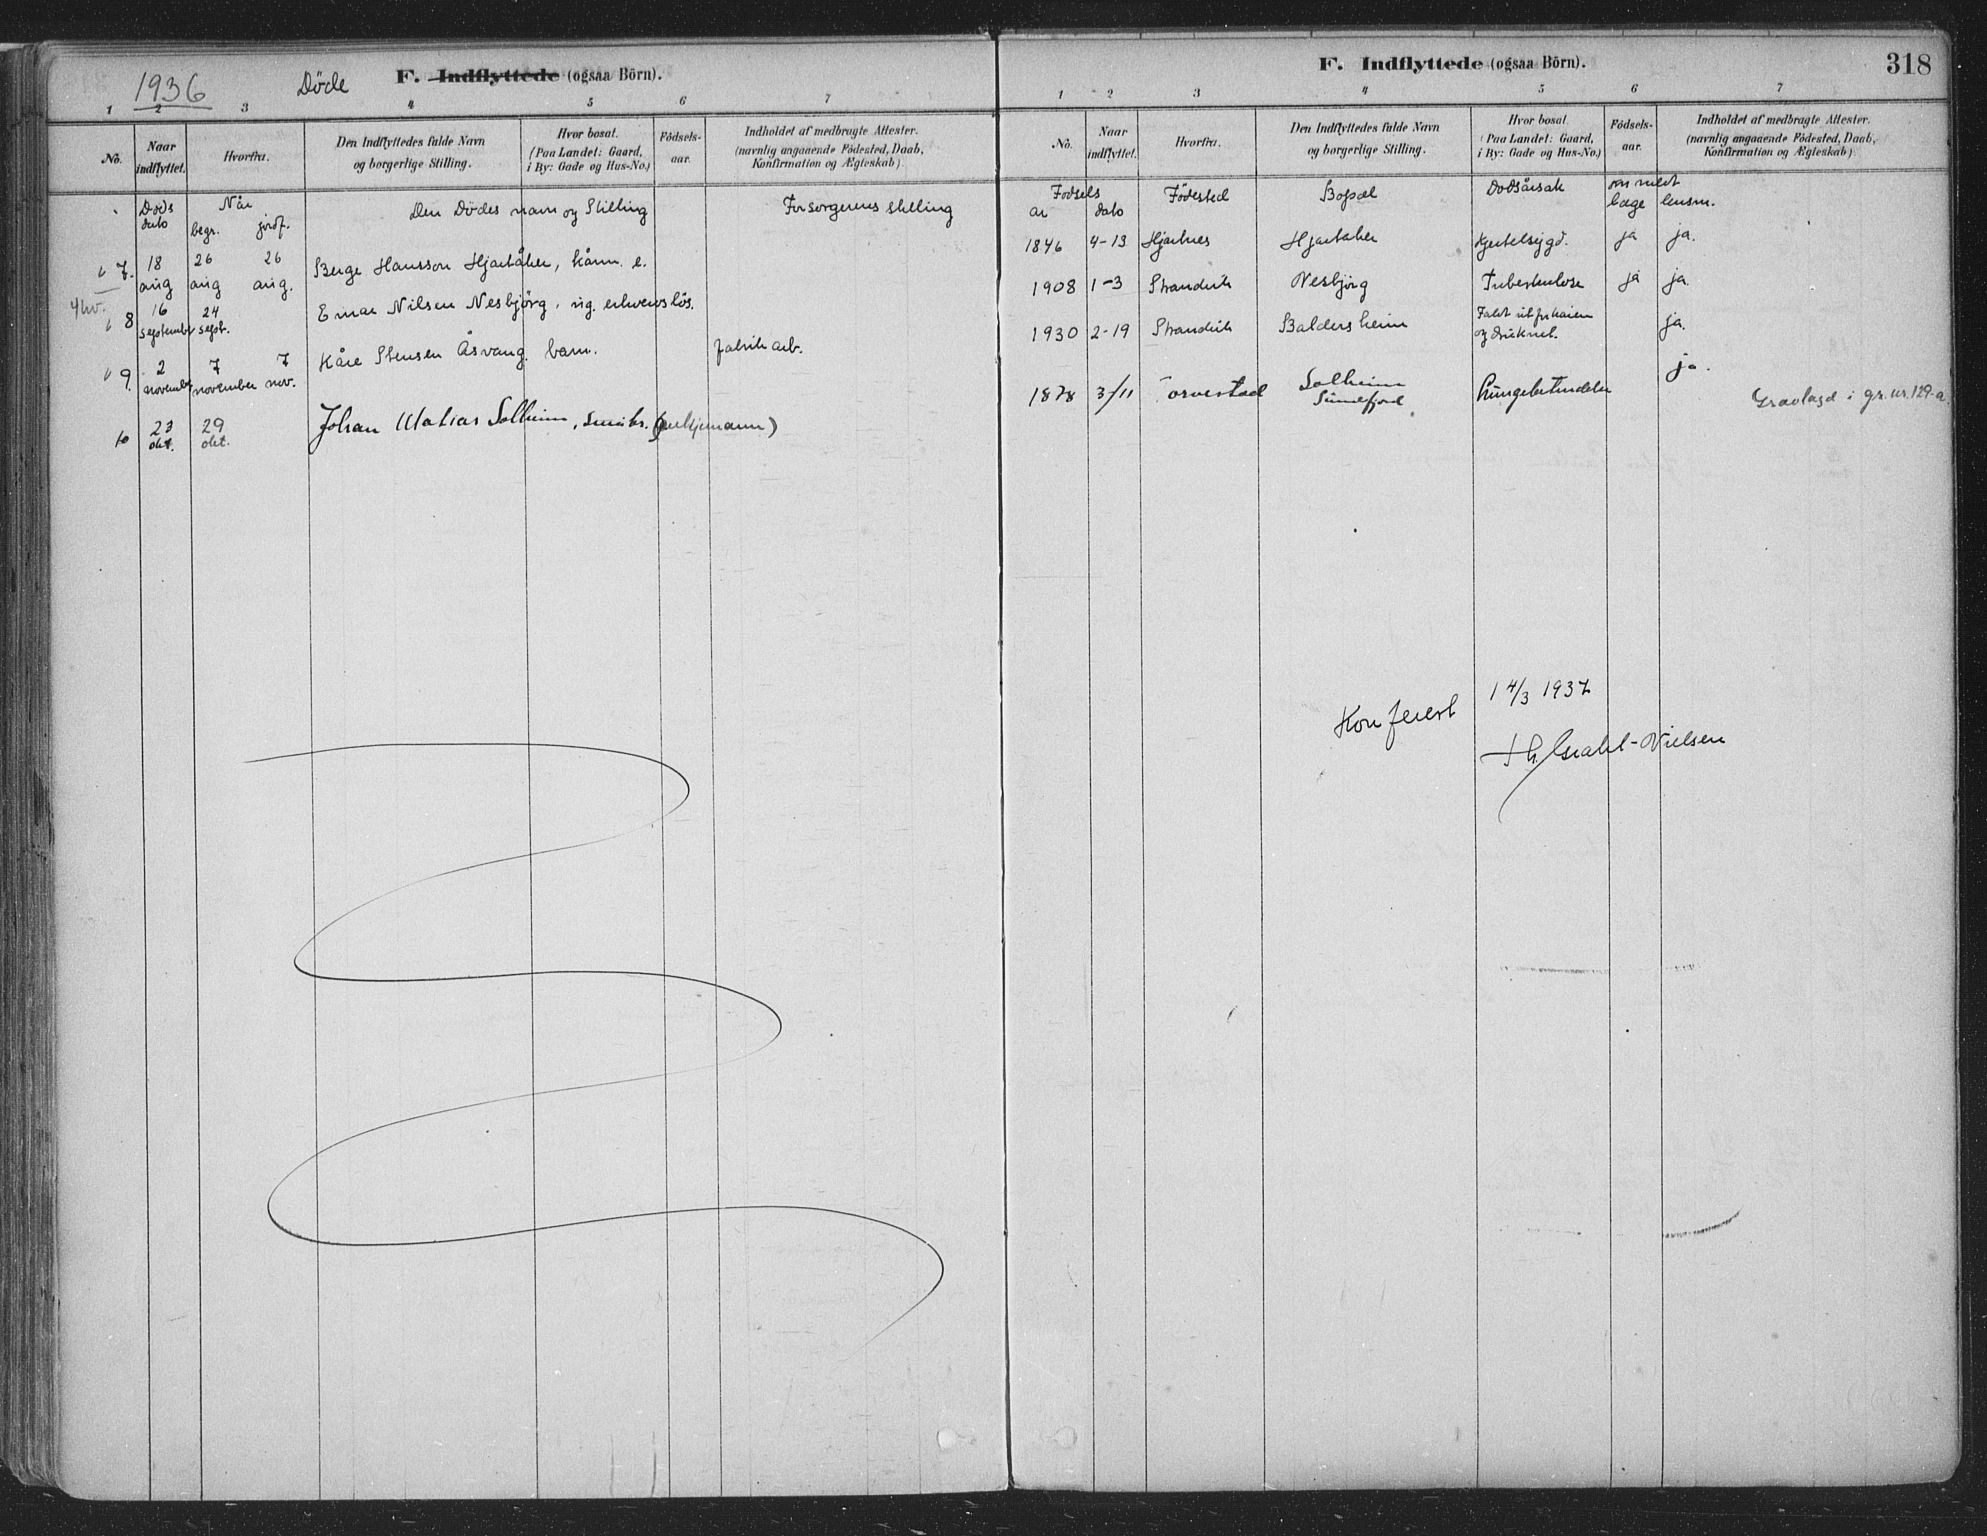 1936 Døde F. Indflyttede (ogsaa Børn).
1 2 3 4 5 6 7
No.
Naar indflyttet.
Hvorfra.
Den Indflyttedes fulde Navn
og borgerlige Stilling.
Hvor bosat.
(Paa Landet: Gaard,
i By: Gade og Hus-No.)
Fødsels-
aar.
Indholdet af medbragte Attester.
(navnlig angaaende Fødested, Daab,
Konfirmation og Ægteskab).
Døds dato
Når
begr. jordf.
Den Dødes navn og Stilling
Forsorgerens stilling
7. 18 aug 26 aug 26 aug. Berge Hansson Hjartåker, kårm. e.
8 16 september 24 sept. Einar Nilsen Nesbjørg, ug. erhvervsløs.
9. 2 november 7 november 7 nov. Kåre Stensen Åsvang. barn. fabrik arb.
10 23 okt. 29 okt. Johan Matias Solheim, småbr. (enkjemann)
F. Indflyttede (ogsaa Børn). 318
1 2 3 4 5 6 7
No.
Naar
indflyttet.
Hvorfra.
Den Indflyttedes fulde Navn
og borgerlige Stilling.
Hvor bosat.
(Paa Landet: Gaard,
i By: Gade og Hus-No.)
Fødsels-
aar.
Indholdet af medbragte Attester.
(navnlig angaaende Fødested, Daab,
Konfirmation og Ægteskab).
Fødsels
år dato
Fødested
Bopæl
Dødsårsak
om meldt
læge lensm.
1846 4-13 Hjartnes Hjartåker Hjertesygd. ja ja.
1908 1-3 Strandvik Nesbjørg Tuberkulose ja ja.
1930 2-19 Strandvik Baldersheim Falt ut fra kaien
og druknet. ja.
1878 3/11 Torvestad Solheim
Sundfjord Lungebetendelse ja.
Gravlagd i gr.nr. 129-a
Konferert 14/3 1937
Th. Grahl-Nielsen